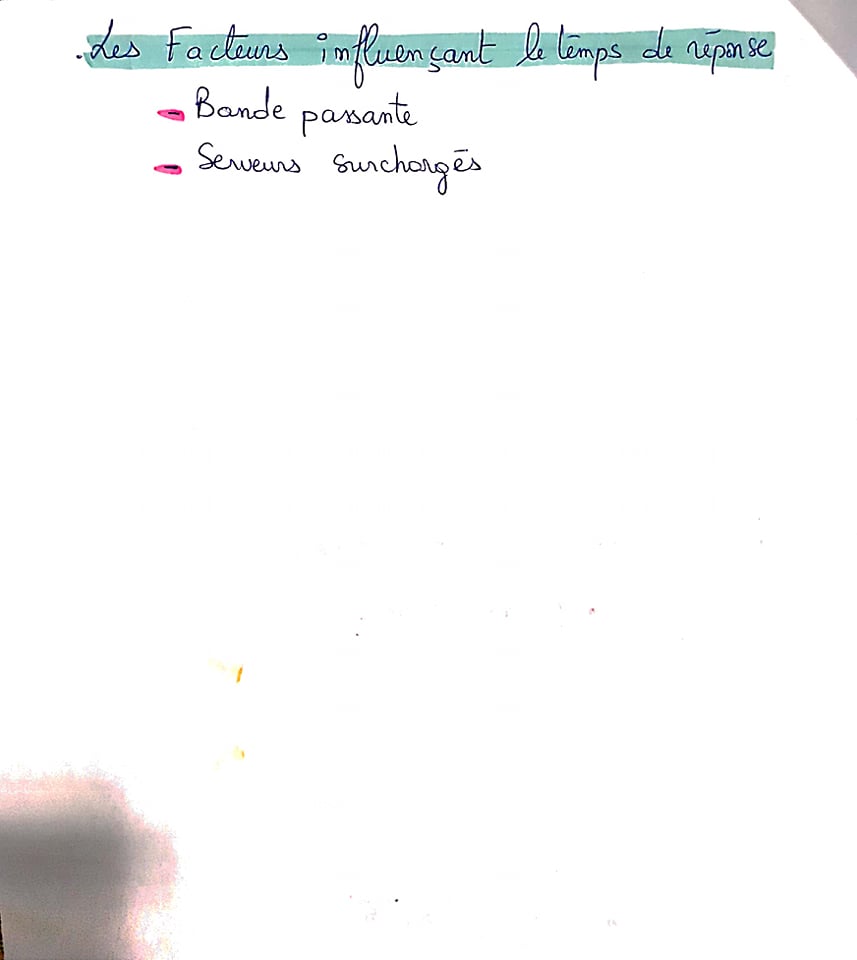 . Les Facteurs influençant le temps de réponse
- Bande passante
- Serveurs surchargés